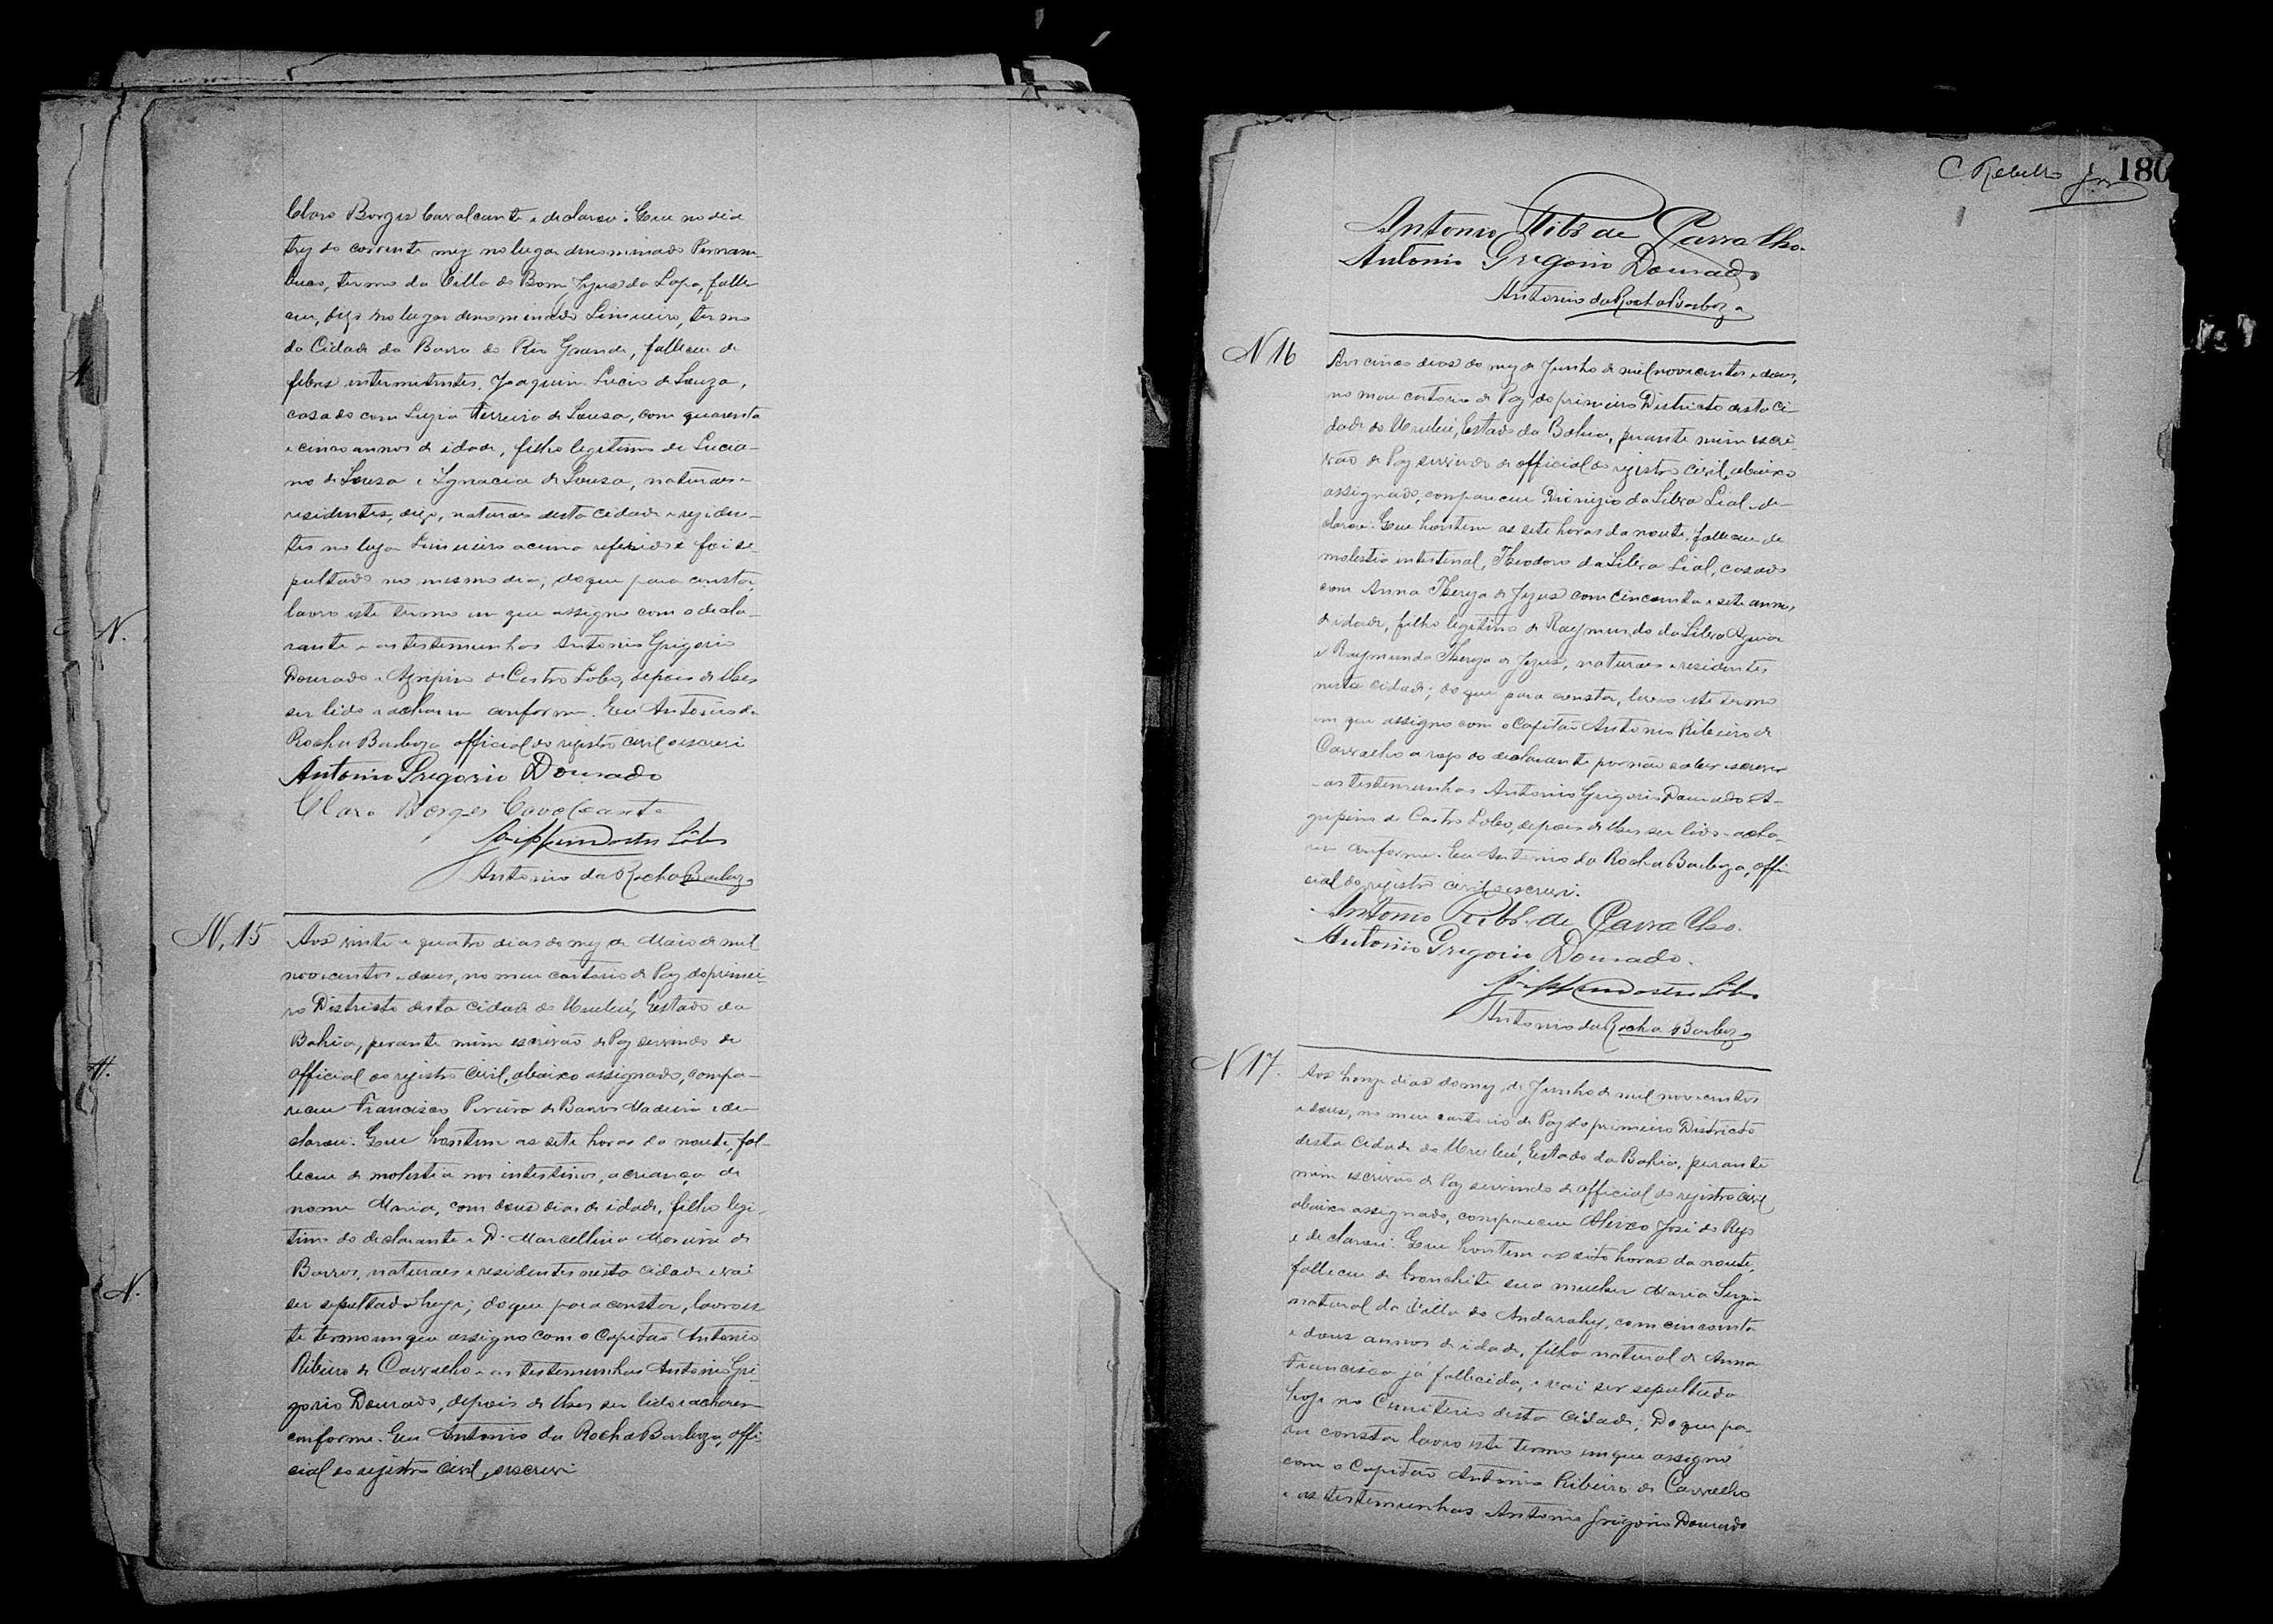 Claro Borges Cavalcante e declarou: Que no dia
trez do corrente mez no lugar denominado Pernam-
buco, termo da Villa do Bom Jezus da Lapa, falle-
ceu, digo no lugar denominado Limueiro, termo
da Cidade da Barra do Rio Grande, falleceu de
febres intermitentes, Joaquim Lucio de Souza,
casado com Luzia Ferreira de Sousa, com quarenta
e cinco annos de idade, filho legitimo de Lucia-
no de Sousa e Ignacia de Sousa, naturaes e
residentes, digo, naturaes desta cidade e reziden-
tes no lugar Limueiro acima referido e foi se-
pultado no mesmo dia; do que para constar,
lavro este termo em que assigno com o decla-
rante e as testemunhas Antonio Grigorio
Dourado e Agripino de Castro Lobo, depois de lhes
ser lido e acharem conforme. Eu Antonio da
Rocha Barboza official do registro civil o escrevi
Antonio Gregorio Dourado
Claro Borges Cavalcante
Castro Lôbo
Antonio da Rocha Barboza
N. 15
Aos vinte e quatro dias do mez de Maio de mil
novecentos e dous, no meu cartorio de Paz do primei-
ro Districto desta cidade do Urubú, Estado da
Bahia, perante mim escrivão de Paz servindo de
official do registro civil, abaixo assignado, compa-
receu Francisco Pereira de Barros Madeira e de-
clarou: Que hontem as sete horas da noute, fal-
leceu de molestia nos intestinos, a criança de
nome Maria, com dous dias de idade, filha legi-
tima do declarante e D. Marcellina de
Barros, naturaes e residentes nesta cidade e vai
ser sepultada hoje; do que para constar, lavro es-
te termo em que assigno com o Capitão Antonio
Ribeiro de Carvalho e as testemunhas Antonio Gri-
gorio Dourado, depois de lhes ser lido e acharem
conforme. Eu Antonio da Rocha Barboza, offi-
cial do registro civil, o escrevi
C Rebello Jor 180
Antonio Ribo de Carvalho
Antonio Gregorio Dourado
Antonio da Rocha Barboza
N 16
Aos cinco dias do mez de Junho de mil novecentos e dous,
no meu cartorio de Paz do primeiro Districto desta ci-
dade do Urubú, Estado da Bahia, perante mim escri-
vão de Paz servindo de official do registro civil, abaixo
assignado, compareceu Dionizio da Silva Lial e de-
clarou: Que hontem as sete horas da noute, falleceu de
molestia intestinal, Theodoro da Silva Lial, casado
com Anna Thereza de Jezus com cincoenta e sete annos
de idade, filho legitimo de Raymundo da Silva Aguiar
e Raymunda Thereza de Jezus, naturaes e residentes
nesta cidade; do que para constar, lavro este termo
em que assigno com o Capitão Antonio Ribeiro de
Carvalho a rogo do declarante por não saber escrever
e as testemunhas Antonio Grigorio Dourado e A-
gripino de Castro Lobo, depois de lhes ser lido e acha-
rem conforme. Eu Antonio da Rocha Barboza, offi-
cial do registro civil, o escrevi.
Antonio Ribo de Carvalho.
Antonio Gregorio Dourado.
Castro Lôbo
Antonio da Rocha Barboza
N 17.
Aos honze dias do mez de Junho de mil novecentos
e dous, no meu cartorio de Paz do primeiro Districto
desta Cidade do Urubú, Estado da Bahia, perante
mim escrivão de Paz servindo de official do registro civil
abaixo assignado, compareceu Aleixo José do Rego
e declarou: Que hontem as oito horas da noute,
falleceu de bronchite sua mulher Maria Luzia
natural da Villa do Andarahy, com cincoenta
e dous annos de idade, filha natural de Anna
Francisca já fallecida, e vai ser sepultada
hoje no Cemiterio desta cidade; Do que pa-
ra constar lavro este termo em que assigno
com o Capitão Antonio Ribeiro de Carvalho
e as testemunhas Antonio Grigorio Dourado
N.
N.